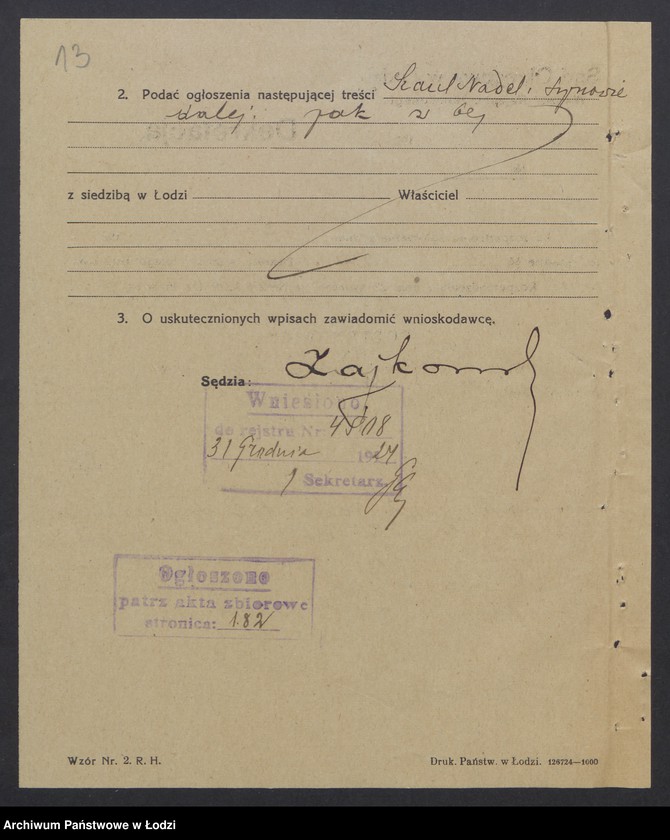 13
2. Podać ogłoszenia następującej treści Szaul Nadel i Synowie
dalej: jak w
z siedzibą w Łodzi Właściciel
3. O uskutecznionych wpisach zawiadomić wnioskodawcę.
Sędzia:
Wniesiono
do rejstru Nr.
31 Grudnia 1924
Sekretarz
Ogłoszono
patrz akta zbiorowe
stronica: 182
Wzór Nr. 2. R. H. Druk. Państw. w Łodzi. 126724—1000
Archiwum Państwowe w Łodzi